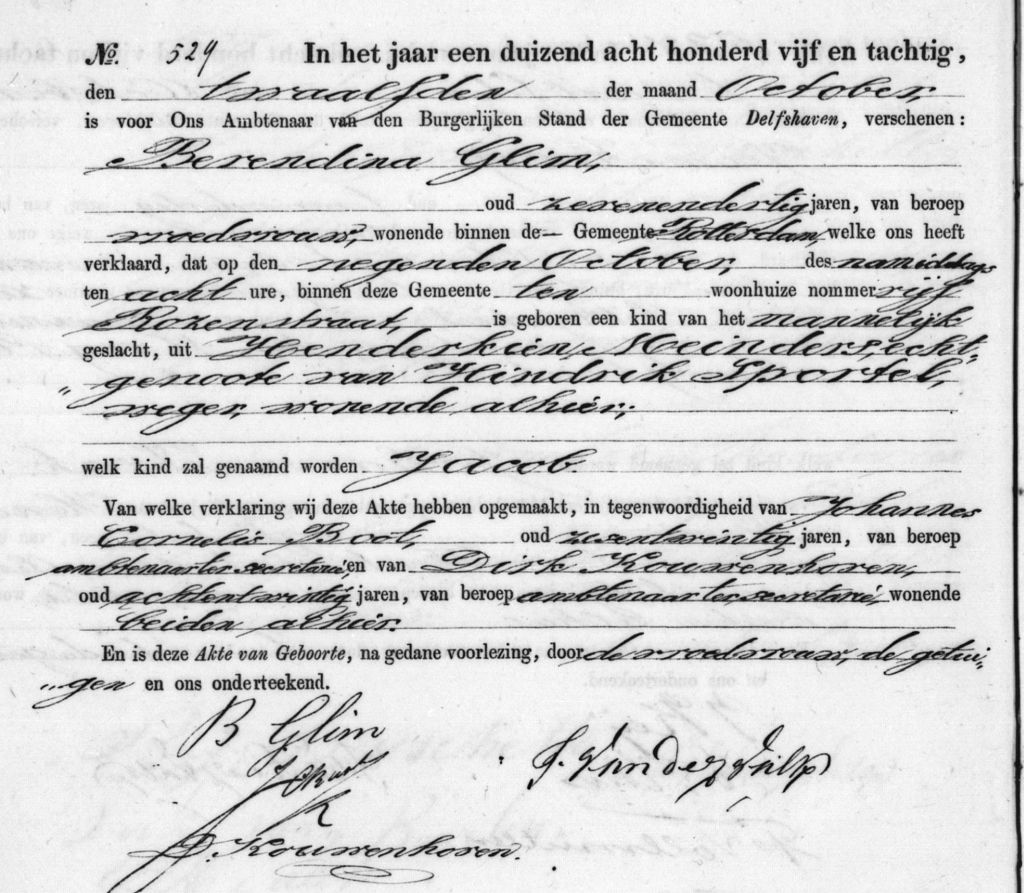 No. 524 In het jaar een duizend acht honderd vijf en tachtig,
den twaalfden der maand October
is voor Ons Ambtenaar van den Burgerlijken Stand der Gemeente Delfshaven, verschenen:
Berendina Glim,
oud zevenendertig jaren, van beroep
vroedvrouw, wonende binnen de Gemeente Rotterdam, welke ons heeft
verklaard, dat op den negenden October, des namiddags
ten acht ure, binnen deze Gemeente ten woonhuize nommer vijf
Rozenstraat, is geboren een kind van het mannelijk
geslacht, uit Henderkien Meinders, echt-
„genoote van Hindrik Sportel,
weger, wonende alhier,
welk kind zal genaamd worden Jacob
Van welke verklaring wij deze Akte hebben opgemaakt, in tegenwoordigheid van Johannes
Cornelis Bool, oud zesentwintig jaren, van beroep
ambtenaar ter secretarie, en van Dirk Kouwenhoven,
oud achtentwintig jaren, van beroep ambtenaar ter secretarie, wonende
beiden alhier.
En is deze Akte van Geboorte, na gedane voorlezing, door de vroedvrouw, de getui-
„gen en ons onderteekend.
B Glim
J. van der
D. Kouwenhoven.